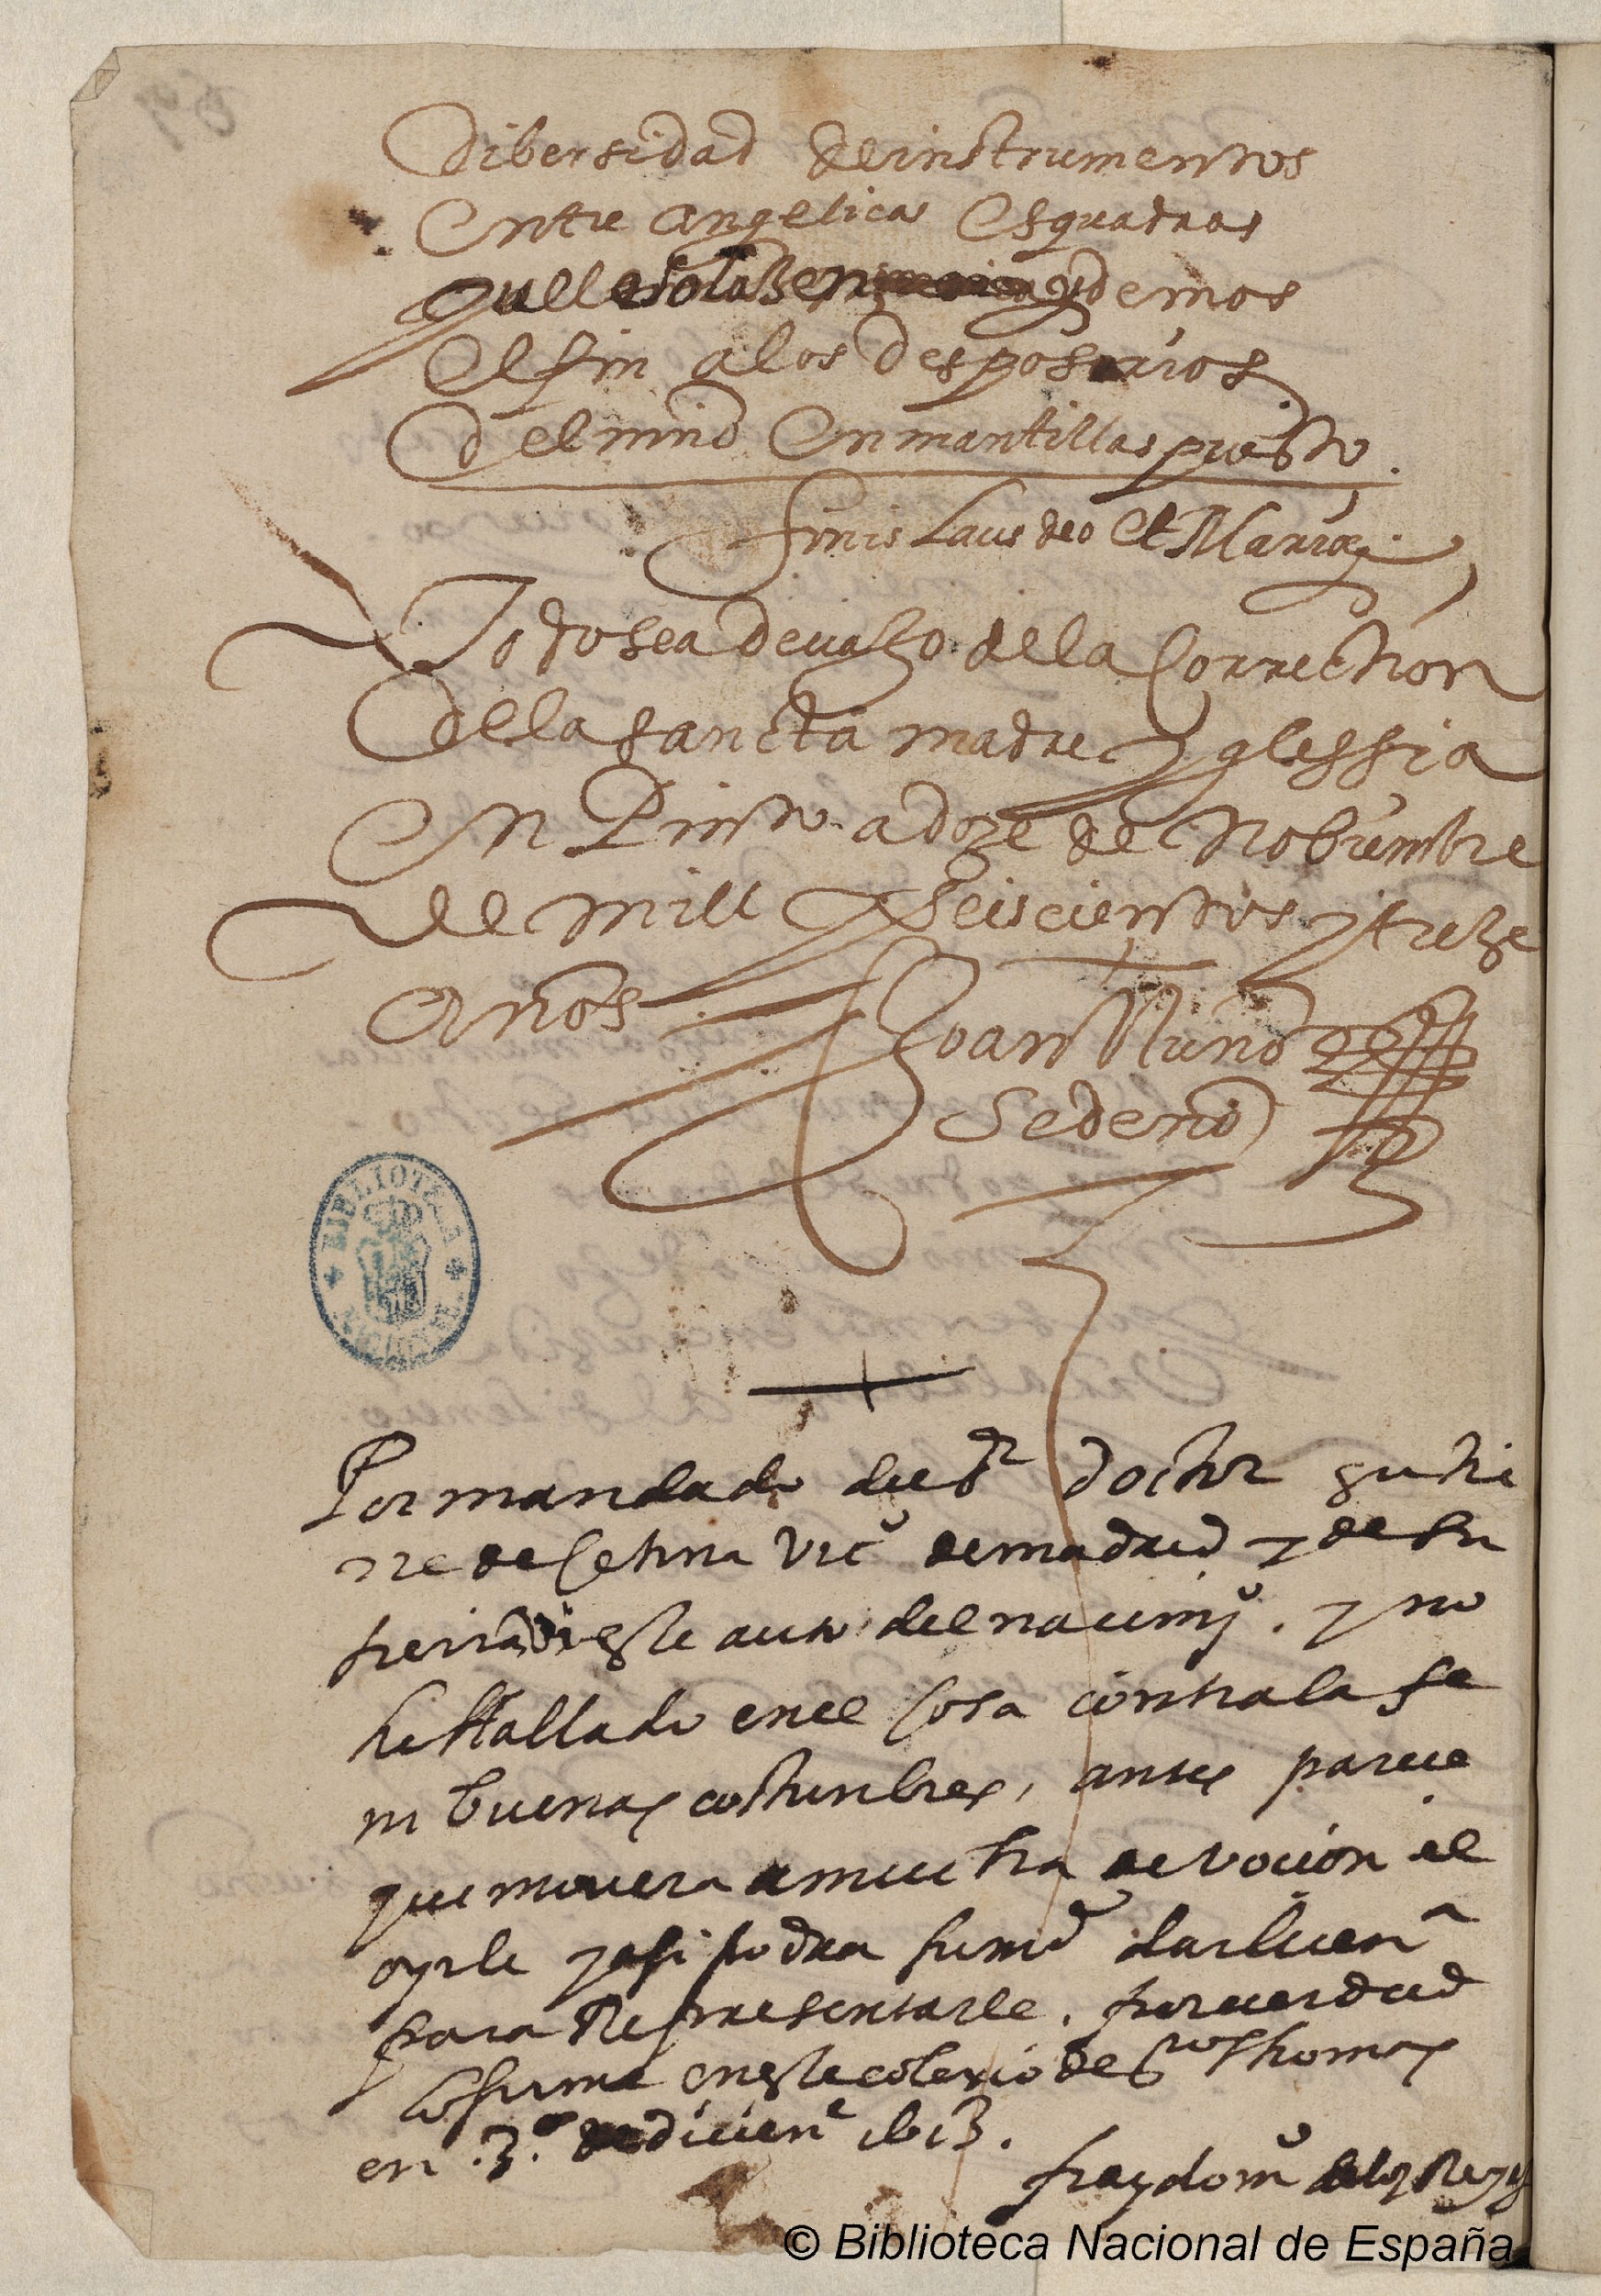 dibersidad de instrumentos
entre angelicas esquadras
el fin a los desposorios
del niño en mantillas puesto.
finis Laus deo et Mariæ.
Todo sea devaxo de la Correction
de la sancta madre Yglessia
en Pinto a doze de Nobiembre
de mill y seiscientos y treze
años
Joan Nuño
Sedeño
BIBLIOTECA NACIONAL
Por mandado del sr doctor gutie
rre de Cetina Vicº de madrid y de su
este auto del nacimiº. y no
he Hallado en el cosa contra la fe
ni buenas costunbres, antes parece
que movera a mucha devocion el
oyrle y asi podra su md dar licena
para Representarle. por verdad
lo firme en este colexio de sto Thomas
en .3.º de diciene 1613.
fray domº de los Reyes
© Biblioteca Nacional de España